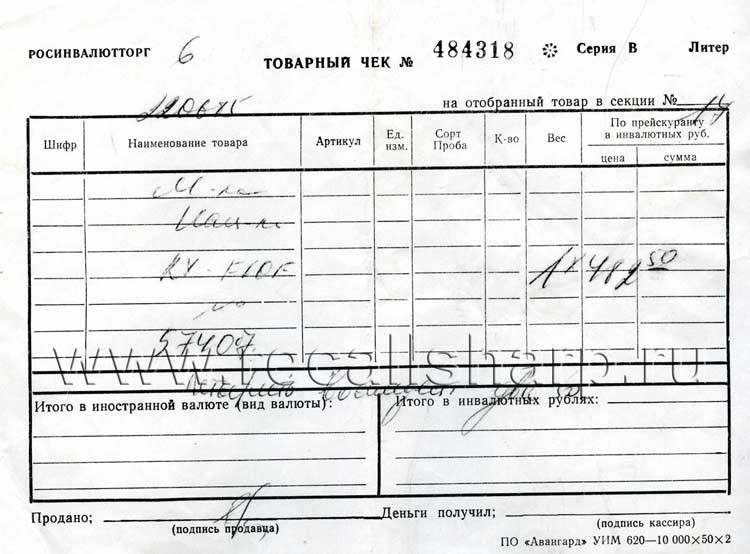 РОСИНВАЛЮТТОРГ 6 ТОВАРНЫЙ ЧЕК № 484318 Серия В Литер
на отобранный товар в секции № 14
Шифр Наименование товара Артикул Ед. изм. Сорт Проба К-во Вес По прейскуранту в инвалютных руб.
цена сумма
М-ка
1 х 482 50
57407
www. .ru
Итого в иностранной валюте (вид валюты): Итого в инвалютных рублях:
Продано; Деньги получил;
(подпись продавца) (подпись кассира)
ПО «Авангард» УИМ 620—10 000×50×2